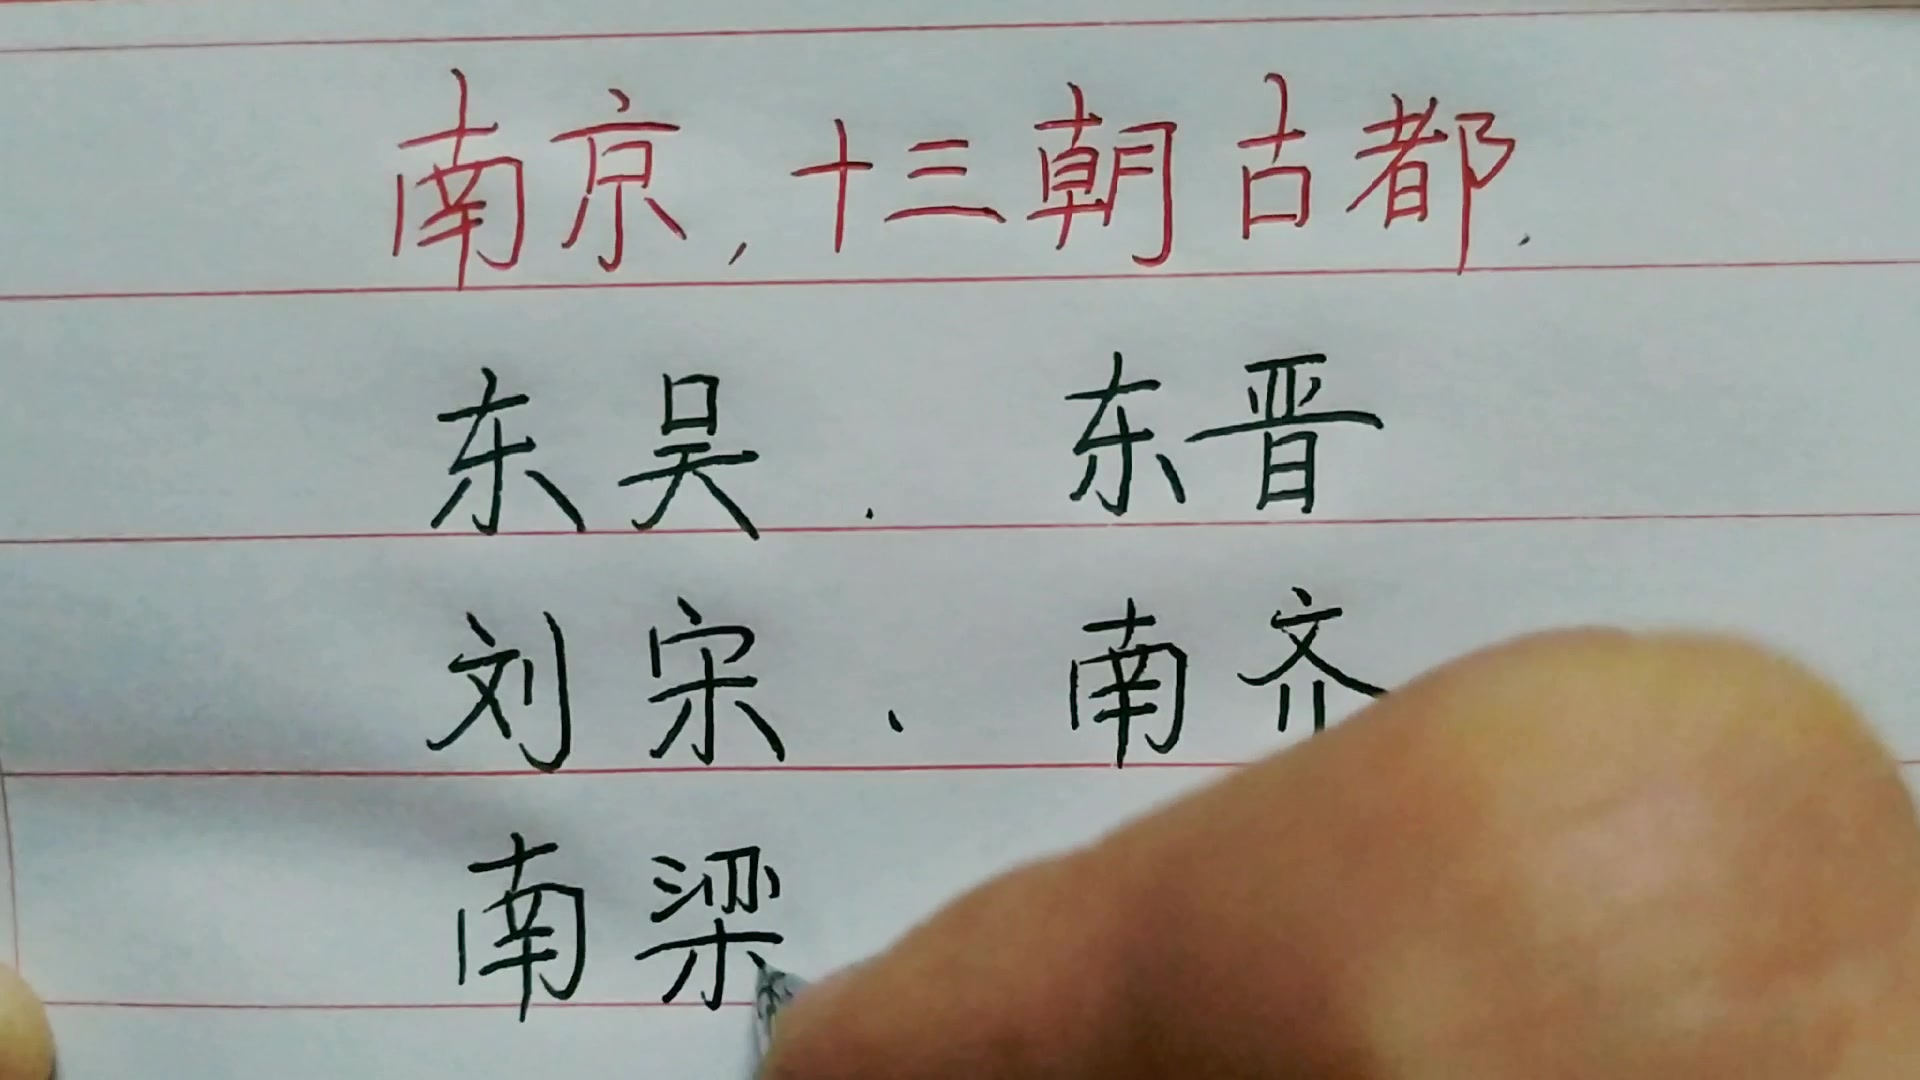 南京，十三朝古都.
东吴. 东晋
刘宋、南齐
南梁